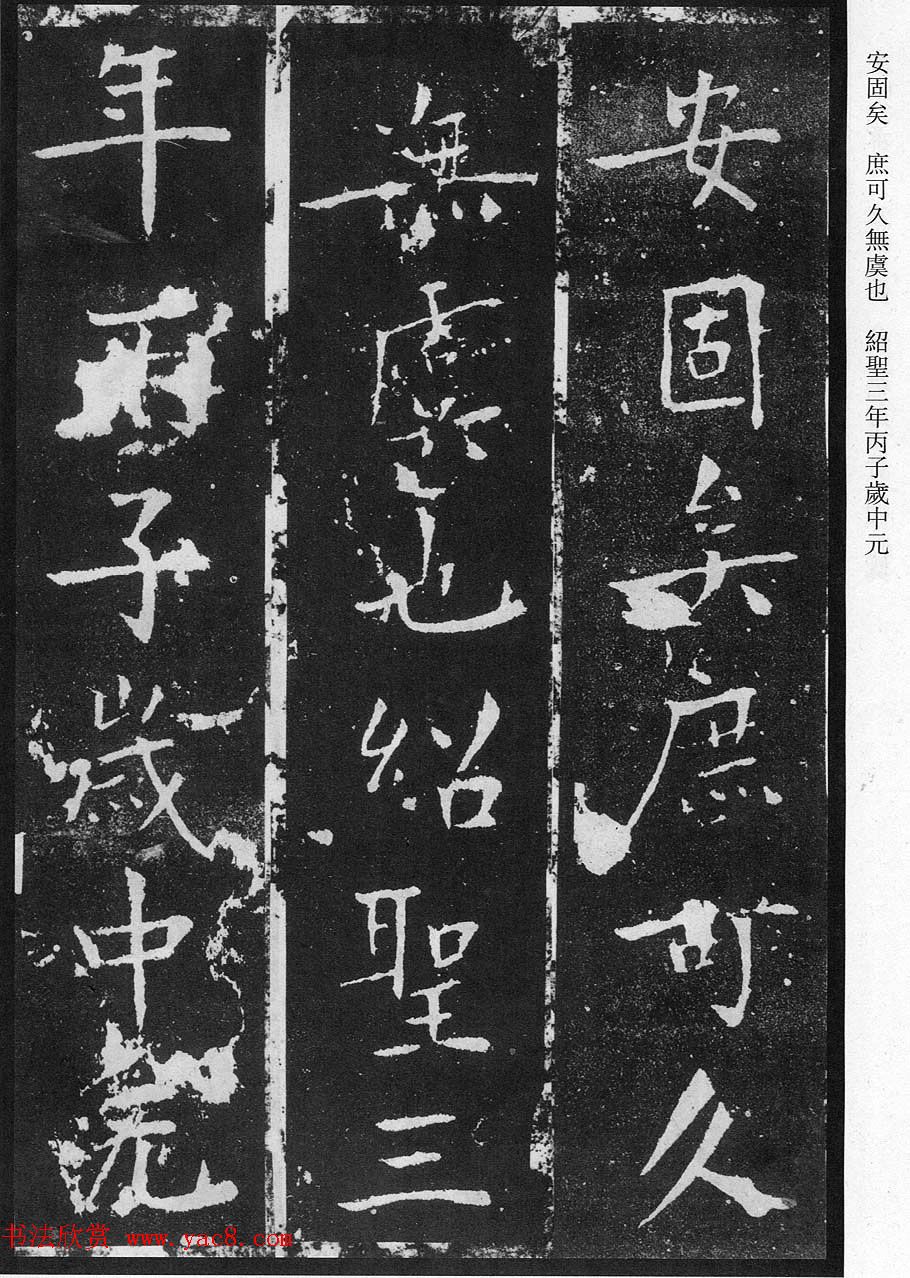 安固矣庶可久
無虞也紹聖三
年丙子歲中元
安固矣　庶可久無虞也　紹聖三年丙子歲中元
书法欣赏 www.yac8.com